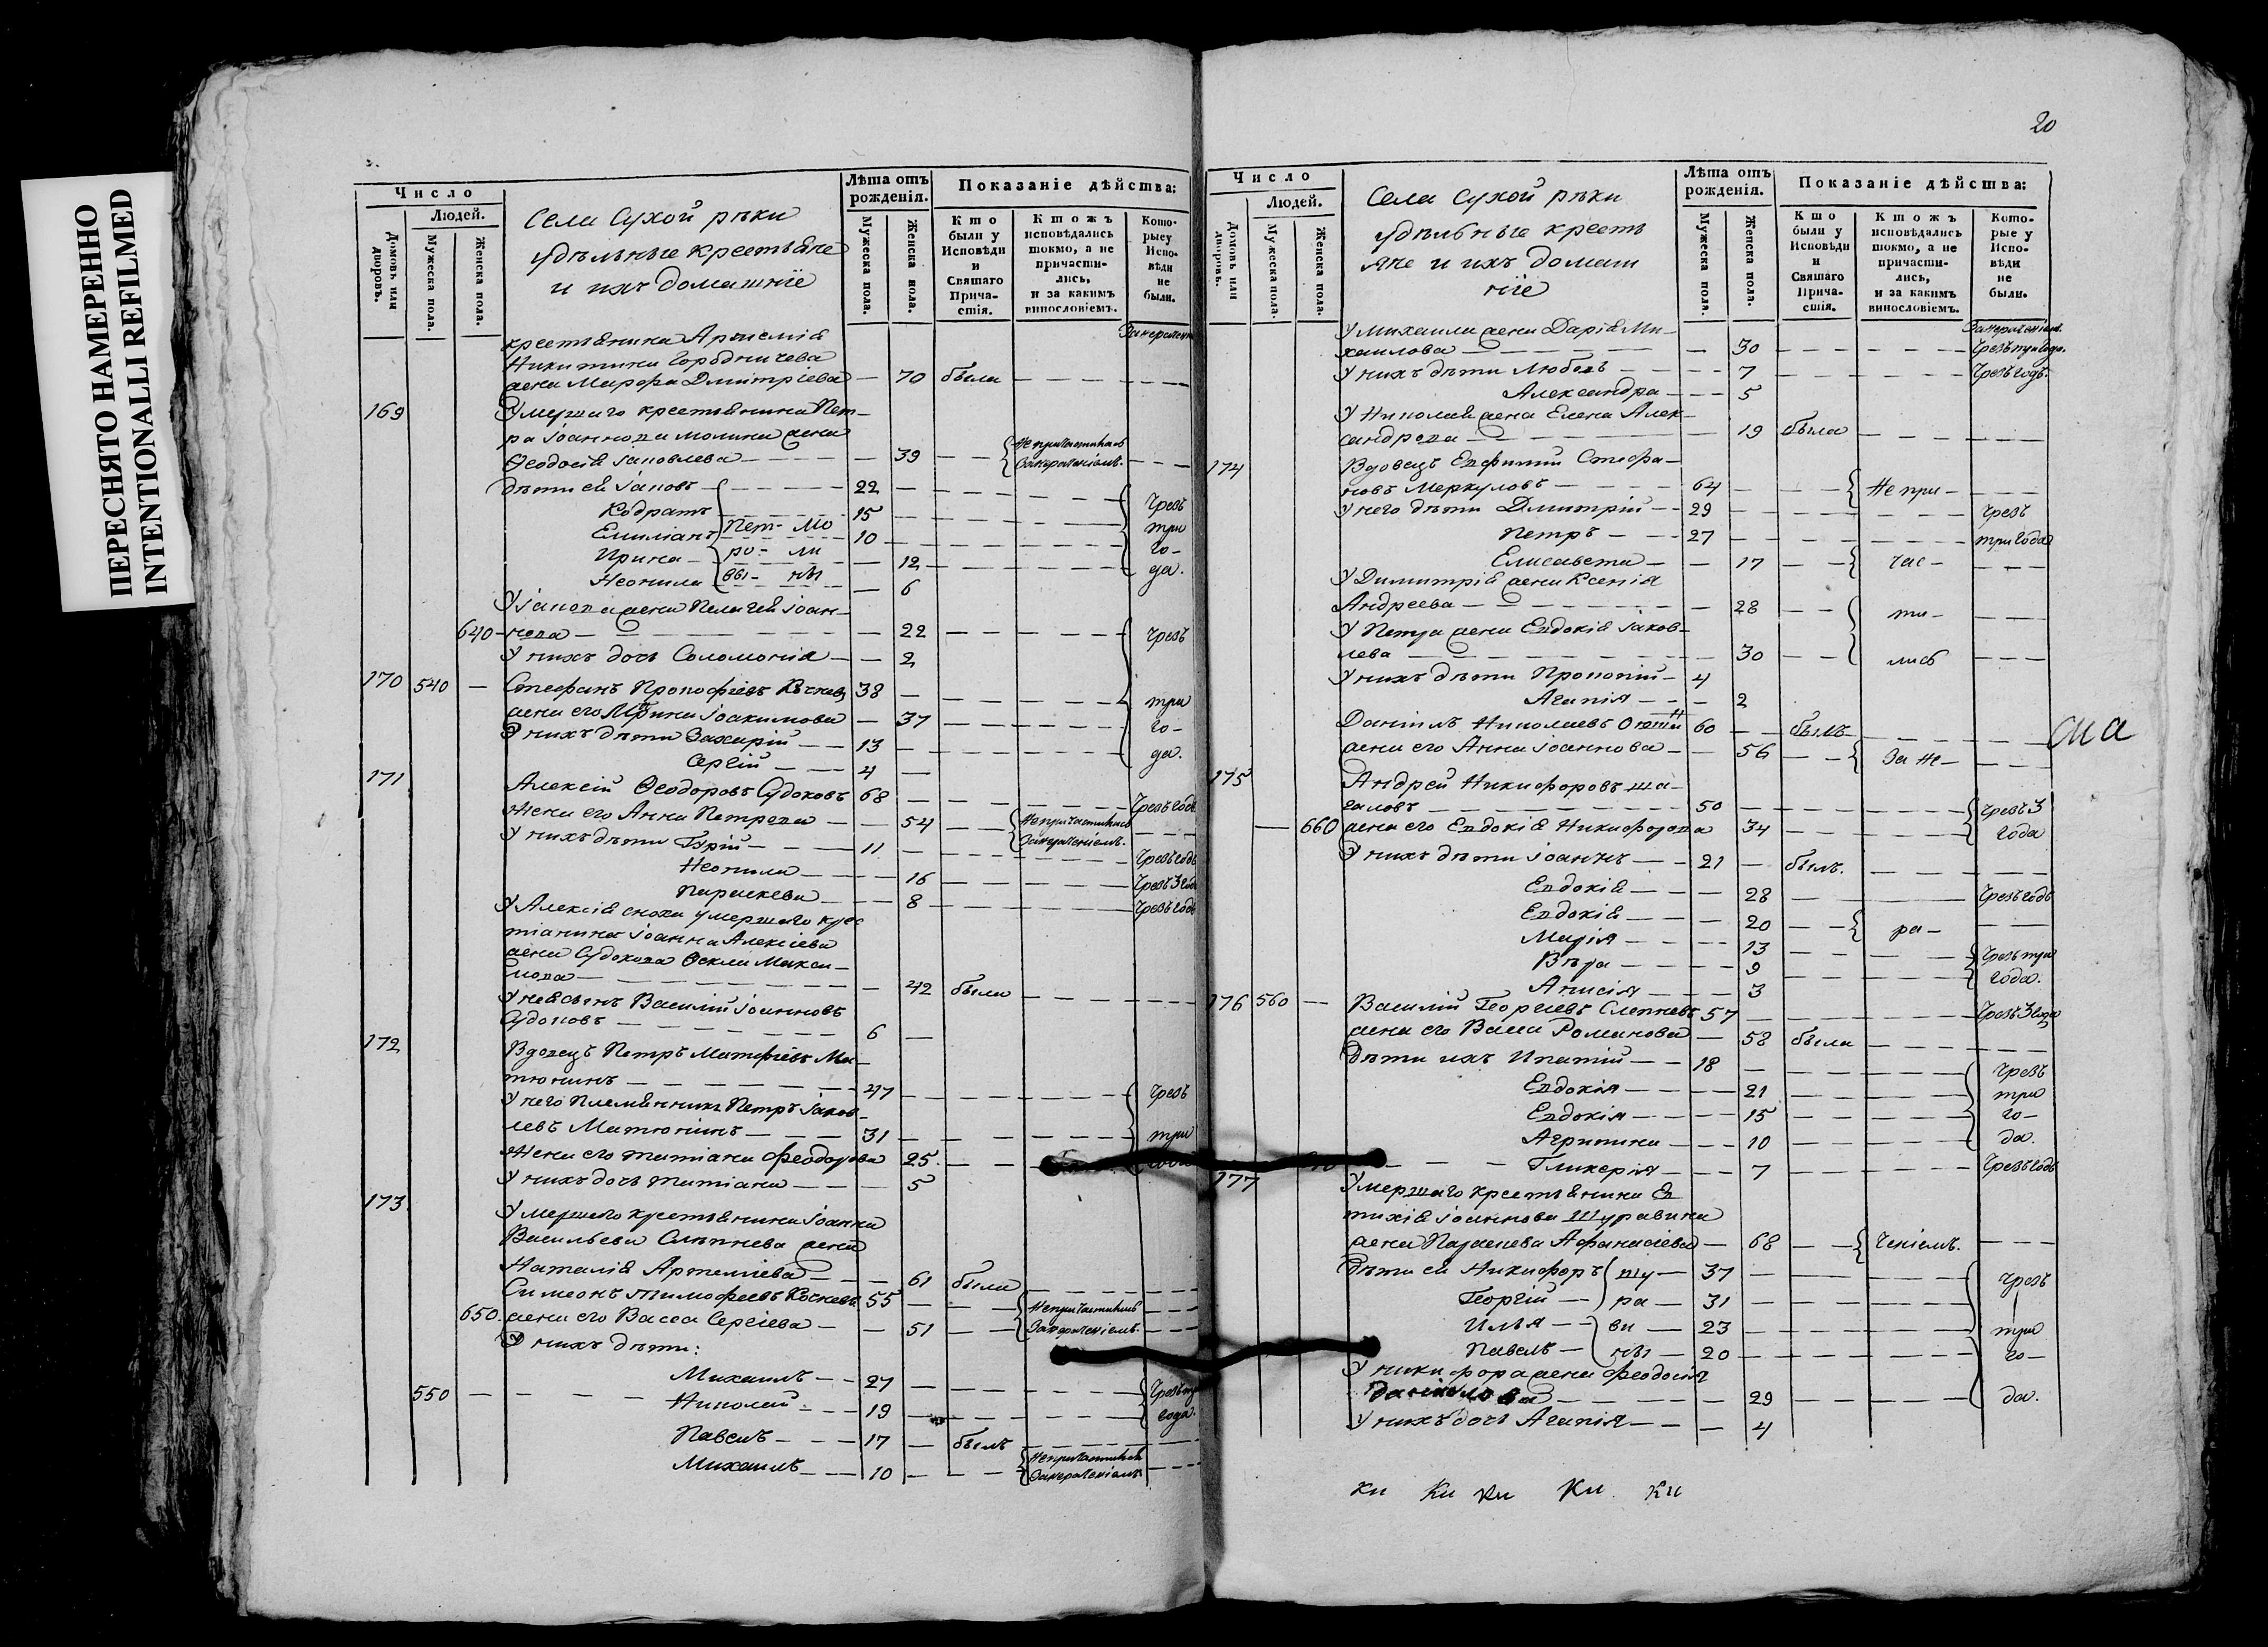 ПЕРЕСНЯТО НАМЕРЕННО
INTENTIONALLI REFILMED
Число
Людей.
Домовъ или дворовъ.
Мужеска пола.
Женска пола.
Села Сухой рѣки
удѣльные крестьяне
и ихъ домашніе
Лѣта отъ рожденія.
Мужеска пола.
Женска пола.
Показаніе дѣйства:
Кто были у Исповѣди и Святаго Причастія.
Ктожъ исповѣдались токмо, а не причастились, и за какимъ винословіемъ.
Которые у Исповѣди не были.
крестьянина Артемія
Никитина Городничева
жена Марфа Димитріева — 70 была — — —
169 Умершаго крестьянина Пет-
ра Іоаннова Молина жена
Ѳеодосія Іаковлева — — 39 — — Не причастилась За нерачениемъ. — — —
Дѣти ея Іаковъ — 22 —
Кодратъ — 15 — Чрезъ
Емиліанъ Пет- Мо — 10 — три
Ирина ро- ли — 12 го-
Неонила вы- ны — 6 да.
У Іакова жена Пелагея Іоан-
640 нова — — 22 — — Чрезъ
У нихъ дочь Соломонія — — 2
170 540 — Стефанъ Прокофіевъ 38 — три
жена его Ирина Іоакимова — 37 го-
У нихъ дѣти Захарій — — 13 — да.
Сергій — 4 —
171 Алексій Ѳеодоровъ Судоковъ 68 — Чрезъ годъ
Жена его Анна Петрова — 54 — Не причастилась За нерачениемъ. — — —
У нихъ дѣти — 11 — Чрезъ годъ
Неонила — — 16 — Чрезъ 3 года
Параскева — — 8 — Чрезъ годъ
У Алексія сноха умершаго крес-
тіанина Іоанна Алексіева
жена Судокова Ѳекла Макси-
мова — — 42 была — — —
У нея сынъ Василій Іоанновъ
Судоковъ — 6 —
172 Вдовецъ Петръ Матфіевъ Ма-
тюнинъ — 47 — Чрезъ
У него племянникъ Петръ Іаков-
левъ Матюнинъ — 31 — три
Жена его Татіана Феодорова 25. — года
У нихъ дочь Татіана — — 5
173. Умершаго крестьянина Іоанна
Васильева Слѣпнева жена
Наталія Артеміева — — 61 была — — —
Симеонъ Тимофеевъ 55 — Не причастились
650. жена его Васса Сергіева — — 51 — За нерачениемъ. — —
У нихъ дѣти:
Михаилъ — 27 — Чрезъ три
550 — Николай — 19 — года.
Павелъ — 17 — былъ
Михаилъ — 10 — Не причастился За нерачениемъ — —
20
Число
Людей.
Домовъ или дворовъ.
Мужеска пола.
Женска пола.
Села Сухой рѣки
удѣльные кресть
яне и ихъ домаш
ніе
Лѣта отъ рожденія.
Мужеска пола.
Женска пола.
Показаніе дѣйства:
Кто были у Исповѣди и Святаго Причастія.
Ктожъ исповѣдались токмо, а не причастились, и за какимъ винословіемъ.
Которые у Исповѣди не были.
У Михаила жена Дарія Ми-
хаилова — — 30 — Чрезъ три года.
У нихъ дѣти Любовь — — 7 — Чрезъ годъ.
Александра — — 5
У Николая жена Елена Алек-
сандрова — — 19 была — — —
174 Вдовецъ Евфимій Стефа-
новъ Меркуловъ — 64 — Не при- — —
У него дѣти Димитрій — 29 — чрезъ
Петръ — 27 — три года
Елисавета — — 17 — час- — —
У Димитрія жена Ксенія
Андреева — — 28 — ти- — —
У Петра жена Евдокія Іаков-
лева — — 30 — лись — — —
У нихъ дѣти Прокопій — 4
Агапія — — 2
Даніилъ Николаевъ 60 — былъ — — —
жена его Анна Іоаннова — — 56 — За не- — —
175 Андрей Никифоровъ Ша-
галовъ — 50 — Чрезъ 3
— 660 жена его Евдокія Никифорова 34 — года
У нихъ дѣти Іоаннъ — 21 — былъ. — — —
Евдокія — — 28 — Чрезъ годъ
Евдокія — — 20 — ра- — —
Марія — — 13 — Чрезъ три
Вѣра — — 9 — года.
Анисія — — 3
176 560 — Василій Георгіевъ Слепневъ 57 — Чрезъ 3 года
жена его Васса Романова — 58 была — — —
Дѣти ихъ Ипатій — 18 — Чрезъ
Евдокія — — 21 — три
Евдокія — — 15 — го-
Агрипина — — 10 — да.
Гликерія — — 7 Чрезъ годъ
177 Умершаго крестьянина Ев
тихія Іоаннова Шуравина
жена Параскева Афанасіева — 68 — ченіемъ. — — —
Дѣти ея Никифоръ Шу — 37 — Чрезъ
Георгій — ра — 31 —
Илья — ви — 23 — три
Павелъ — ны — 20 — го-
У Никифора жена Феодосія
Даниилова — — 29 — да.
У нихъ дочь Агапія — — 4
ки ки ки ки ки